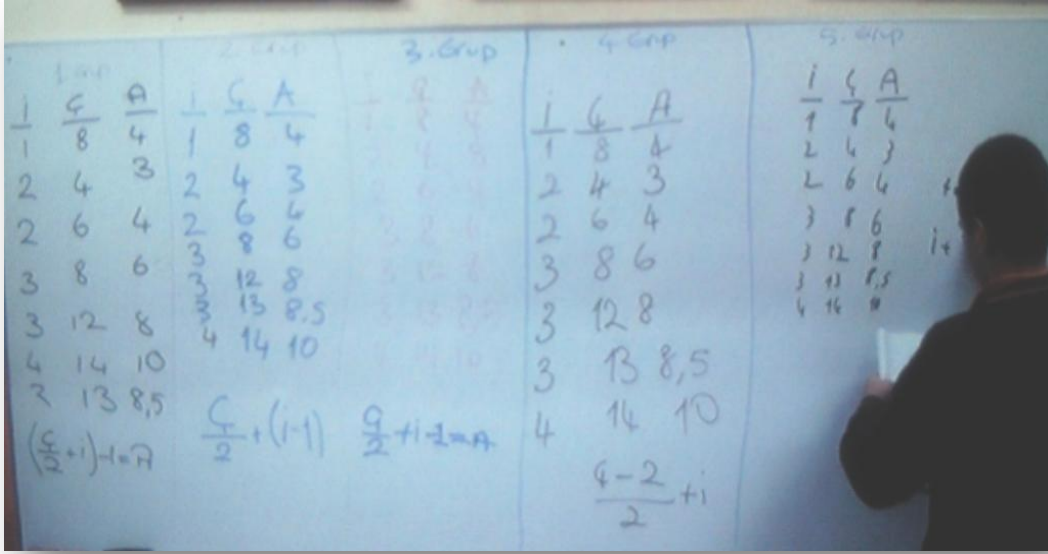 1. Grup
i Ç A
1 8 4
2 4 3
2 6 4
3 8 6
3 12 8
4 14 10
3 13 8,5
(Ç/2 + i) -1 = A
2. Grup
i Ç A
1 8 4
2 4 3
2 6 4
3 8 6
3 12 8
3 13 8,5
4 14 10
Ç/2 + (i-1)
3. Grup
i Ç A
3 13 8,5
Ç/2 + i - 1 = A
4. Grup
i Ç A
1 8 4
2 4 3
2 6 4
3 8 6
3 12 8
3 13 8,5
4 14 10
Ç-2/2 + i
5. Grup
i Ç A
1 8 4
2 4 3
2 6 4
3 8 6
3 12 8
3 13 8,5
4 14 10
i+